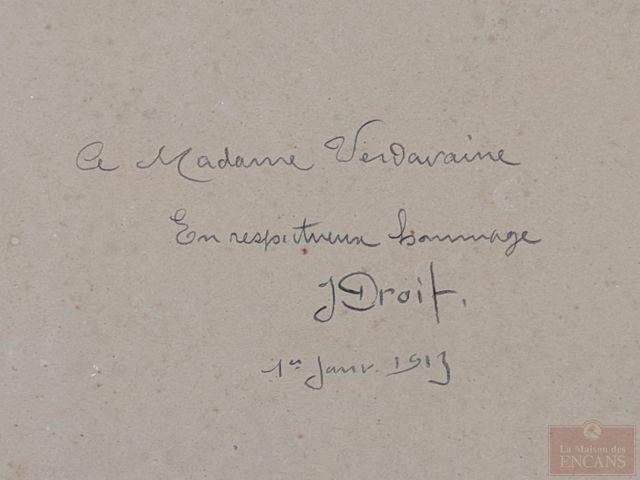 A Madame Verdavaine
En respectueux hommage
JDroit.
1er Janv. 1913
La Maison des
ENCANS